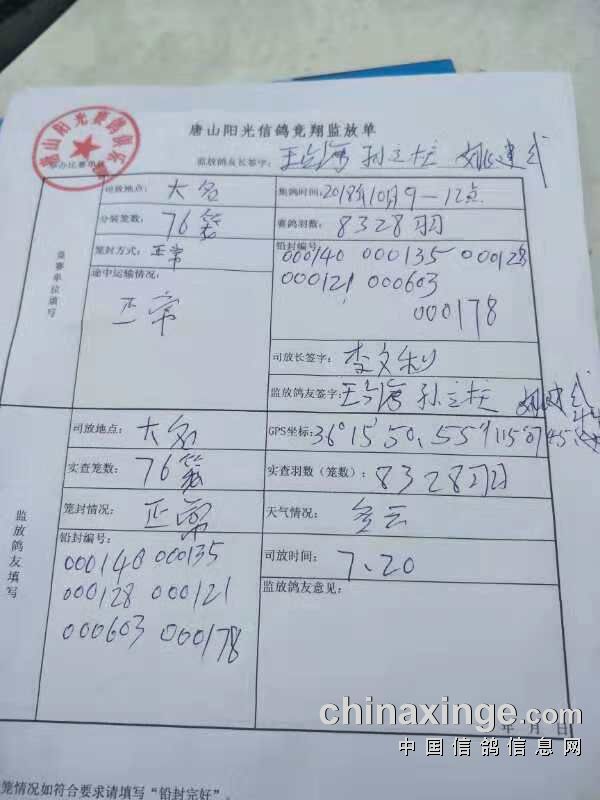 唐山阳光赛鸽俱乐部
举办比赛单位
唐山阳光信鸽竞翔监放单
监放鸽友长签字： 孙立柱
竞赛单位填写
司放地点：大名 集鸽时间：2018年10月9-12点
分装笼数：76笼 赛鸽羽数：8328羽
笼封方式：正常 铅封编号：
000140 000135 000128
000121 000603
000178
途中运输情况：
正常
司放长签字：李文利
监放鸽友签字： 孙立柱
监放鸽友填写
司放地点：大名 GPS坐标：36°15′50、55″/115°07′45
实查笼数：76笼 实查羽数（笼数）：8328羽
笼封情况：正常 天气情况：多云
铅封编号：
000140 000135
000128 000121
000603 000178
司放时间：7、20
监放鸽友意见：
年 月 日
chinaxinge.com
中国信鸽信息网
笼情况如符合要求请填写“铅封完好”。